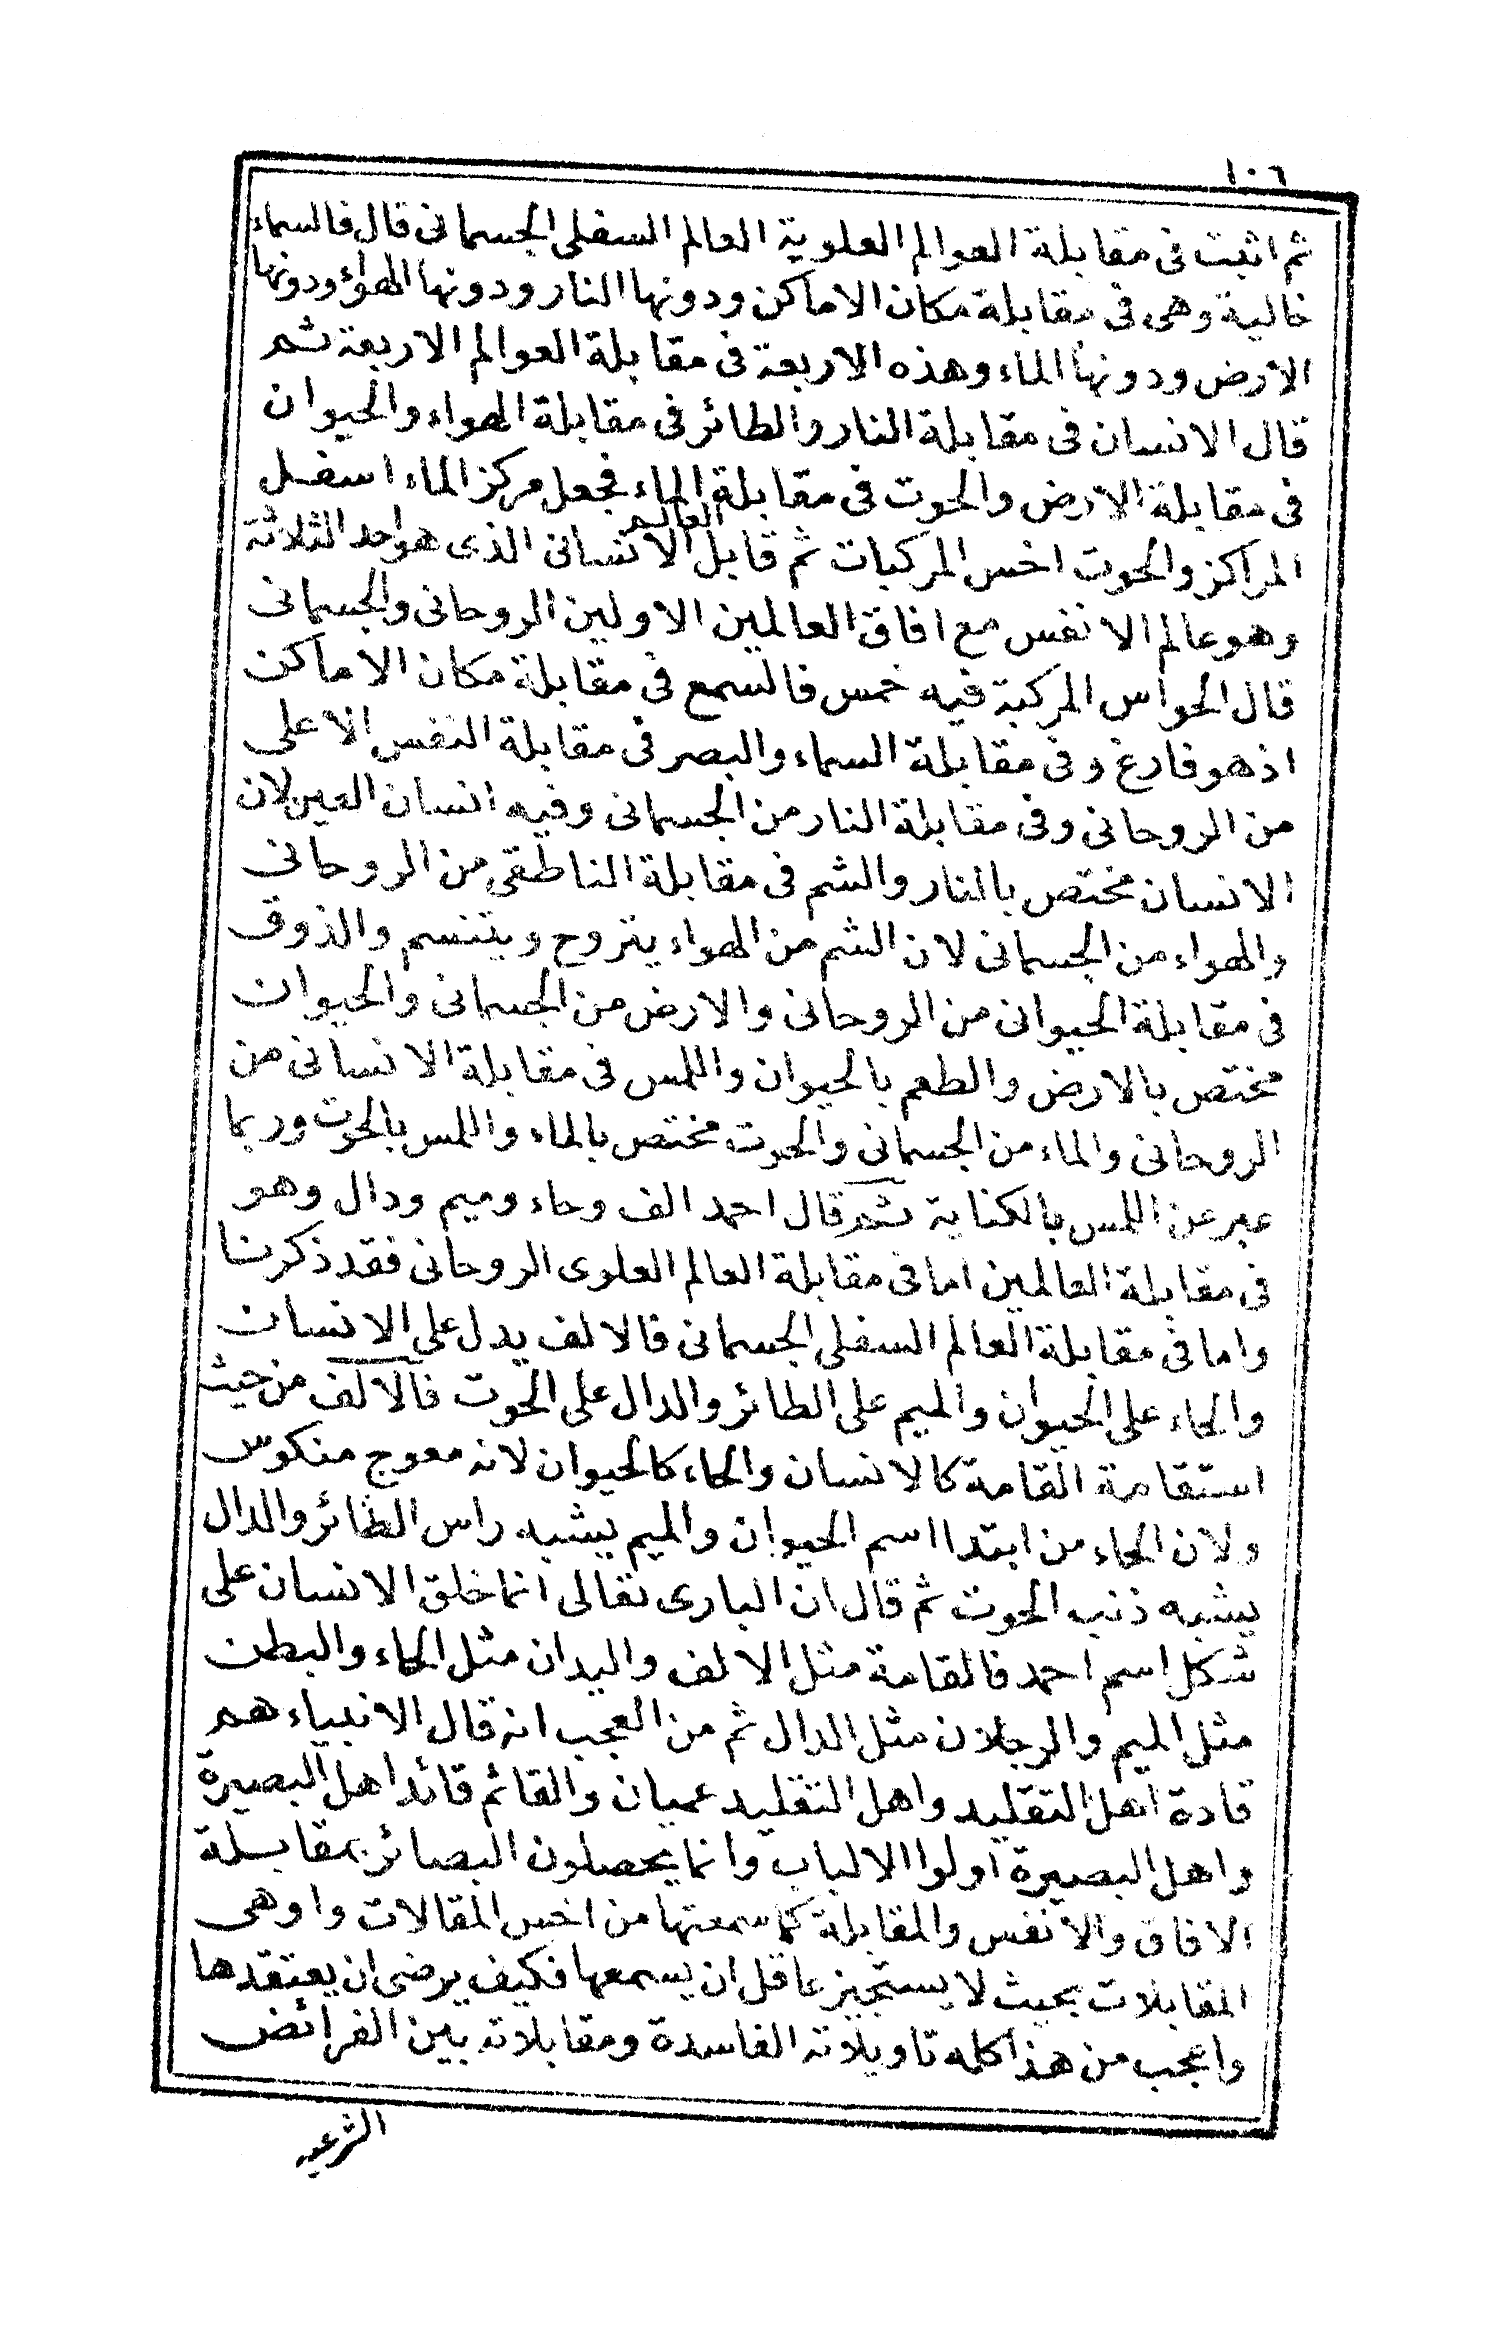 ١٠٦
ثم اثبت فى مقابلة العوالم العلوية العالم السفلى الجسمانى قال فالسماء
خالية وهى فى مقابلة مكان الاماكن ودونها النار ودونها الهواء ودونها
الارض ودونها الماء وهذه الاربعة فى مقابلة العوالم الاربعة ثم
قال الانسان فى مقابلة النار والطائر فى مقابلة الهواء والحيوان
فى مقابلة الارض والحوت فى مقابلة الماء فجعل مركز الماء اسفل
المراكز والحوت اخس المركبات ثم قابل العالم الانسانى الذى هو احد الثلاثة
وهو عالم الانفس مع افاق العالمين الاولين الروحانى والجسمانى
قال الحواس المركبة فيه خمس فالسمع فى مقابلة مكان الاماكن
اذ هو فارغ وفى مقابلة السماء والبصر فى مقابلة النفس الاعلى
من الروحانى وفى مقابلة النار من الجسمانى وفيه انسان العين لان
الانسان مختص بالنار والشم فى مقابلة الناطقى من الروحانى
والهواء من الجسمانى لان الشم من الهواء يتروح ويتنسم والذوق
فى مقابلة الحيوانى من الروحانى والارض من الجسمانى والحيوان
مختص بالارض والطعم بالحيوان واللمس فى مقابلة الانسانى من
الروحانى والماء من الجسمانى والحوت مختص بالماء واللمس بالحوت وربما
عبر عن اللمس بالكناية ثم قال احمد الف وحاء وميم ودال وهو
فى مقابلة العالمين اما فى مقابلة العالم العلوى الروحانى فقد ذكرنا
واما فى مقابلة العالم السفلى الجسمانى فالالف يدل على الانسان
والحاء على الحيوان والميم على الطائر والدال على الحوت فالالف من حيث
استقامة القامة كالانسان والحاء كالحيوان لانه معوج منكوس
ولان الحاء من ابتدا اسم الحيوان والميم يشبه راس الطائر والدال
يشبه ذنب الحوت ثم قال ان البارى تعالى انما خلق الانسان على
شكل اسم احمد فالقامة مثل الالف واليدان مثل الحاء والبطن
مثل الميم والرجلان مثل الدال ثم من العجب انه قال الانبياء هم
قادة اهل التقليد واهل التقليد عميان والقائم قائد اهل البصيرة
واهل البصيرة اولوا الالباب وانما يحصلون البصائر بمقابلة
الافاق والانفس والمقابلة كما سمعتها من اخس المقالات واوهى
المقابلات بحيث لا يستجيز عاقل ان يسمعها فكيف يرضى ان يعتقدها
واعجب من هذا كله تاويلاته الفاسدة ومقابلاته بين الفرائض
الشرعيه